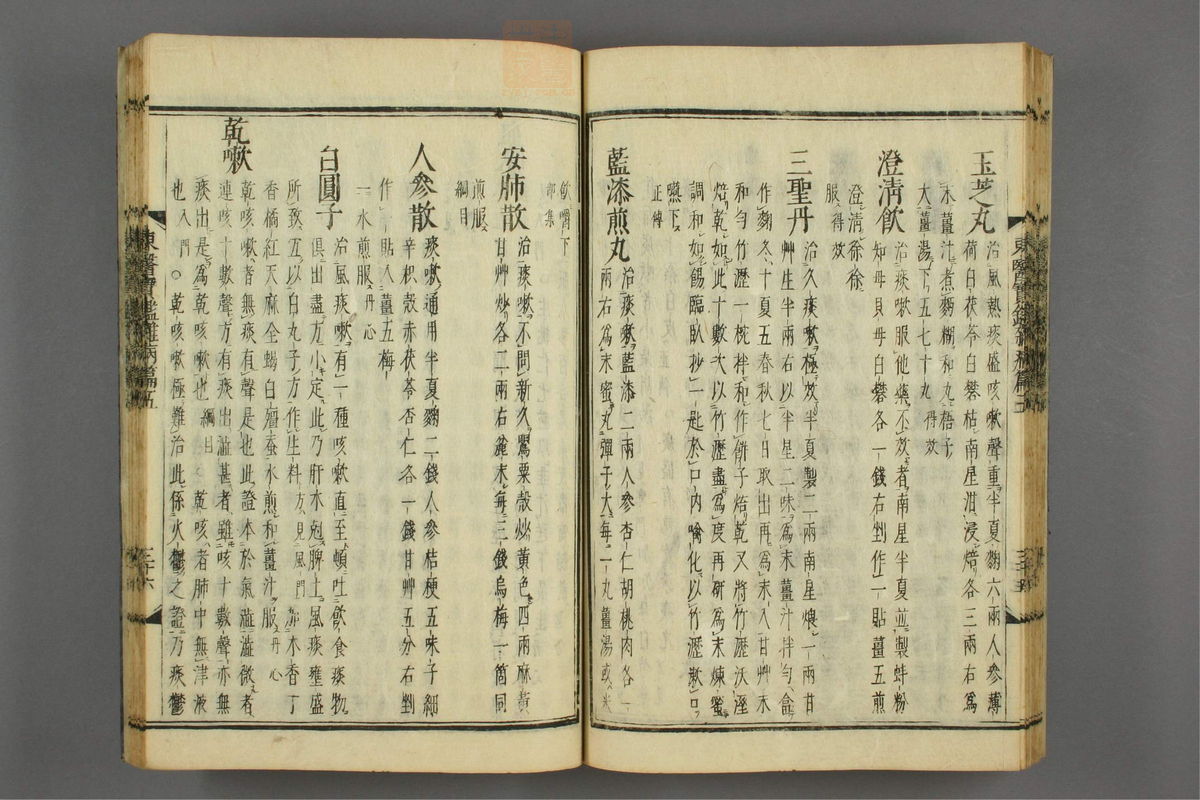 玉芝丸 治風熱痰盛咳嗽聲重半夏麴六兩人參薄
荷白茯苓白礬枯南星泔浸焙各三兩右爲
末薑汁煮麪糊和丸梧子
大薑湯下五七十丸 得效
澄清飮 治痰嗽服他藥不效者南星半夏並製蚌粉
知母貝母白礬各一錢右剉作一貼薑五煎
澄清徐徐
服 得效
三聖丹 治久痰嗽極效半夏製二兩南星煨一兩甘
艸生半兩右以半星二味爲末薑汁拌勻盒
作麴冬十夏五春秋七日取出再爲末入甘艸末
和勻竹瀝一椀拌和作餠子焙乾又將竹瀝沃溼
焙乾如此十數次以竹瀝盡爲度再硏爲末煉蜜
調和如餳臨臥抄一匙於口內噙化以竹瀝漱口
嚥下
正傳
藍漆煎丸 治痰嗽藍漆二兩人參杏仁胡桃肉各一
兩右爲末蜜丸彈子大每一丸薑湯或米
東醫寶鑑雜病篇五
三十六
飮嚼下
集
安肺散 治痰嗽不問新久罌粟殼炒黃色四兩麻黃
甘艸炒各二兩右麁末每三錢烏梅一箇同
煎服
綱目
人參散 痰嗽通用半夏麴二錢人參桔梗五味子細
辛枳殼赤茯苓杏仁各一錢甘艸五分右剉
作一貼入薑五梅
一水煎服 丹心
白圓子 治風痰嗽有一種咳嗽直至頓吐飮食痰物
俱出盡方小定此乃肝木剋脾土風痰壅盛
所致五以白丸子方作生料 方見風門 加木香丁
香橘紅天麻全蝎白殭蚕水煎和薑汁服 丹心
乾嗽 乾咳嗽者無痰有聲是也此證本於氣澁澁微者
連咳十數聲方有痰出澁甚者雖咳十數聲亦無
痰出是爲乾咳嗽也 綱目 ○乾咳者肺中無津液
也 入門 ○乾咳嗽極難治此係火鬱之證乃痰鬱